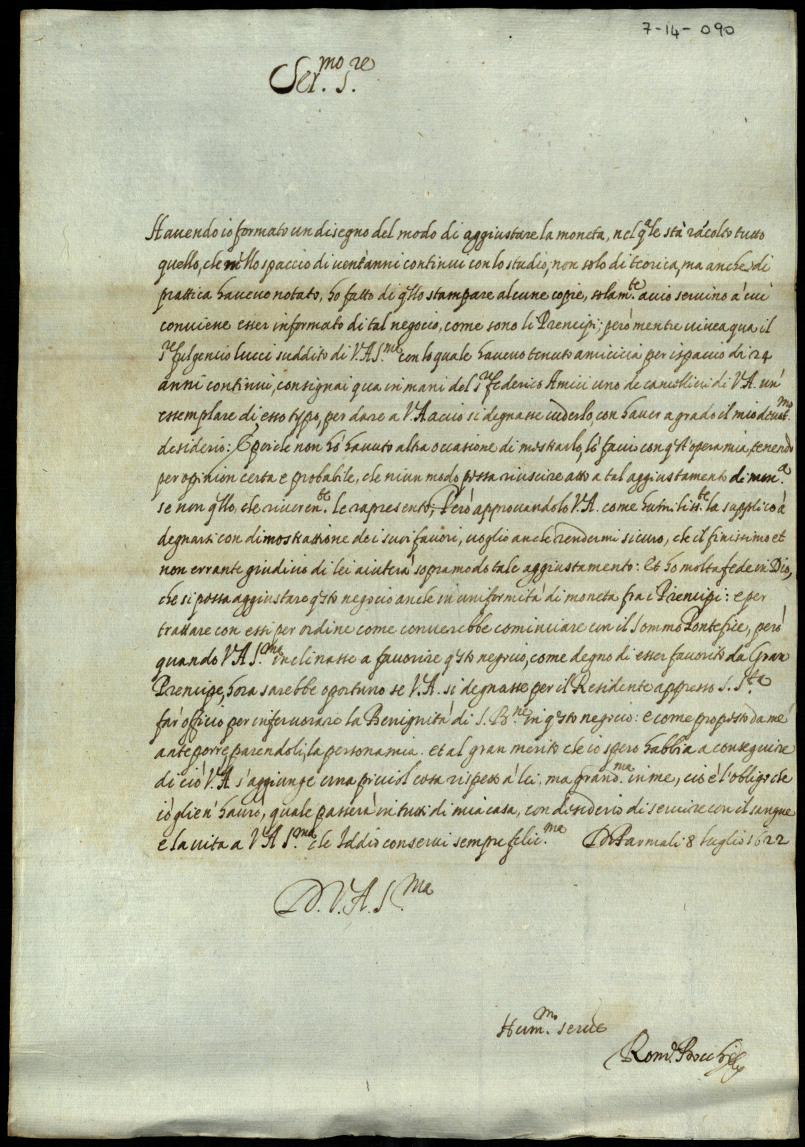 7-14-090
Ser.mo S.re
Havendo io formato un disegno del modo di aggiustare la moneta, nel qale stà racolto tutto
quello, che nello spaccio di vent'anni continui con lo studio, non solo di teorica, ma anche di
prattica havevo notato, ho fatto di qllo stampare alcune copie, solam.te acciò servino à cui
conviene esser informato di tal negocio, come sono li Prencipi; però mentre viveva qua il
S.re fulgencio lucci suddito di V.A.S.ma con lo quale havevo tenuto amicicia per ispaccio di 24
anni continui, consignai qua in mani del S.r federico Amici uno de cancellieri di V.A. un'
essemplare di esso typo, per dare a V.A acciò si degnasse vederlo, con haver a grado il mio devot.mo
desiderio: E perche non hò havuto altra occasione di mostrarlo, lo facio con qst'opera mia, tenendo
per opinion certa e probabile, che niun modo possa riuscire atto a tal aggiustamento di mon.a
se non qllo, che riveren.te le rapresento; Però approvandolo V.A. come humiliss.te la supplico à
degnarsi con dimostrattione de i suoi favori, voglio anche rendermi sicuro, che il finissimo et
non errante giudicio di lei aiuterà sopramodo tale aggiustamento: Et ho molta fede in Dio,
che si possa aggiustare qsto negocio anche in uniformità di moneta fra i Prencipi: e per
trattare con essi per ordine come converebbe cominciare con il sommo Pontefice, però
quando V.A S.ma inclinasse a favorire qsto negocio, come degno di esser favorito da Gran
Prencipe, hora sarebbe oportuno se V.A. si degnasse per il Residente appresso S. S.tà
far officio per infervorare la Benignità di S. B.ne in qsto negocio: e come proposto da me
anteporre, parendoli, la persona mia. et al gran merito che io spero habbia a conseguire
di ciò V.A s'aggiunge una picciol cosa rispetto à lei, ma grand.ma in me, ciò è l'obligo che
io glien' haurò, quale passerà in tutti di mia casa, con desiderio di servire con il sangue
e la vita a V.A S.ma che Iddio conservi sempre felic.ma Di Parma li 8 luglio 1622
D. V. A. S.ma
Hum.mo serve
Rom.o Bocchi